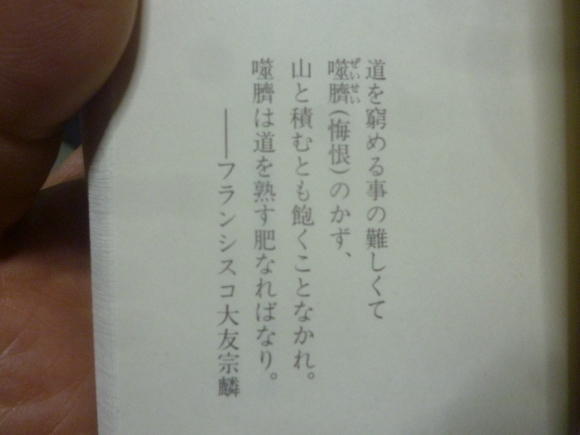 道を窮める事の難しくて
噬臍(悔恨)のかず、
山と積むとも飽くことなかれ。
噬臍は道を熟す肥なればなり。
――フランシスコ大友宗麟
ぜいせい